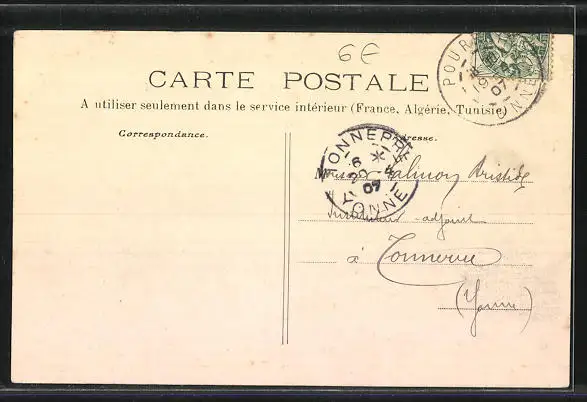 6€
CARTE POSTALE
A utiliser seulement dans le service intérieur (France, Algérie, Tunisie)
Correspondance.
Adresse.
POUR YONNE
TONNERRE
6
20
07
YONNE
Salmon Aristide
adjoint
à Tonnerre
(Yonne)